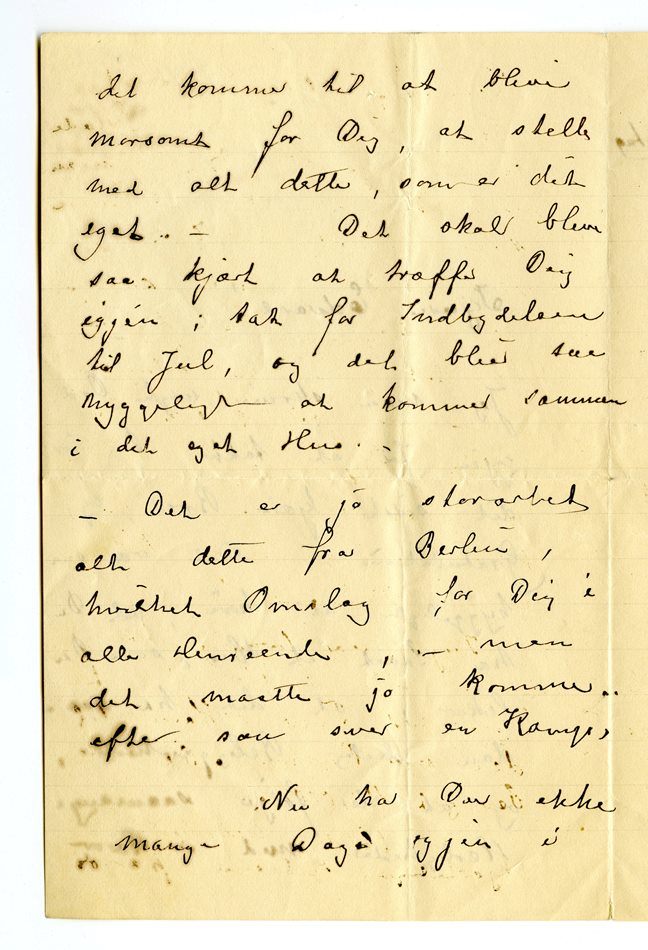 det komme til at blive
morsomt for Dig, at stelle
med alt dette, som er dit
eget. –   Det skal blive
saa kjært at træffe Dig
igjen; tak for Indbydelsen
til Jul, og det blir saa
hyggeligt at komme sammen
i det eget Hus. –
– Det er jo storartet
alt dette fra Berlin,
hvilket Omslag for Dig i
alle Henseender, – men
det maatte jo komme..
efter saa svær en Kamp,
Nu har Du ikke
mange Dage igjen i